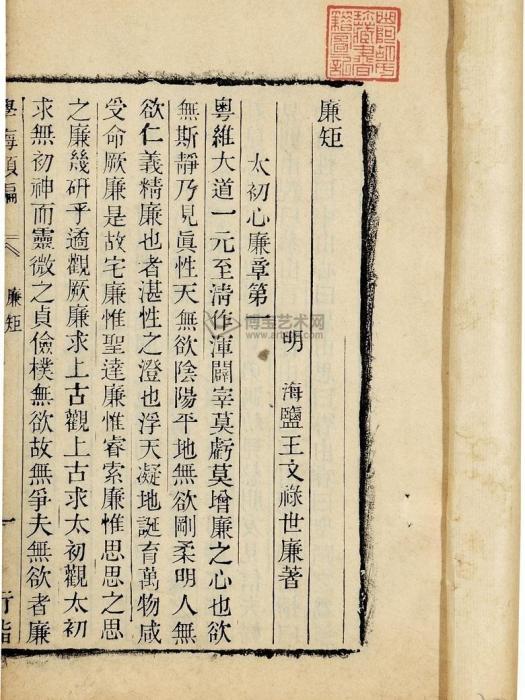 廉矩
明 海鹽王文祿世廉著
太初心廉章第一
粵維大道一元至清作渾闢宰莫虧莫增廉之心也欲
無斯靜乃見眞性天無欲陰陽平地無欲剛柔明人無
欲仁義精廉也者湛性之澄也浮天凝地誕育萬物咸
受命厥廉是故宅廉惟聖達廉惟睿索廉惟思思之思
之廉幾研乎遹觀厥廉求上古觀上古求太初觀太初
求無初神而靈微之貞儉樸無欲故無爭夫無欲者廉
學海類編 廉矩 一 行詣
博宝艺术网